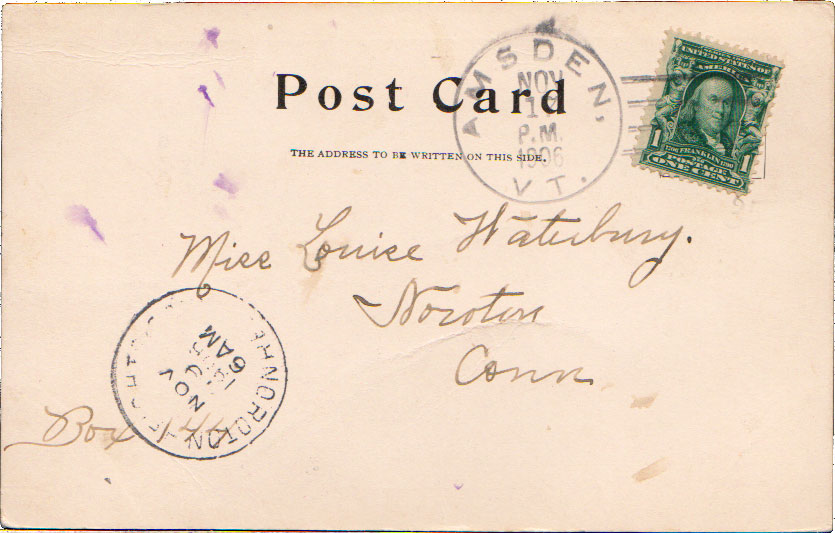 Post Card
THE ADDRESS TO BE WRITTEN ON THIS SIDE.
AMSDEN,
NOV
17
P.M.
1906
VT.
UNITED STATES OF
AMERICA
1 FRANKLIN 1
POSTAGE
ONE CENT
Miss Louise Waterbury.
Noroton
Conn
NOROTON
NOV
6AM
Box